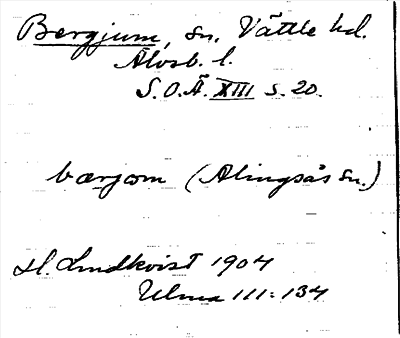 Bergjum, sn. Vättle hd.
Älvsb. l.
S.O.Ä. XIII s. 20.
bærjom (Alingsås sn.)
H. Lindkvist 1904
Ulma 111:134